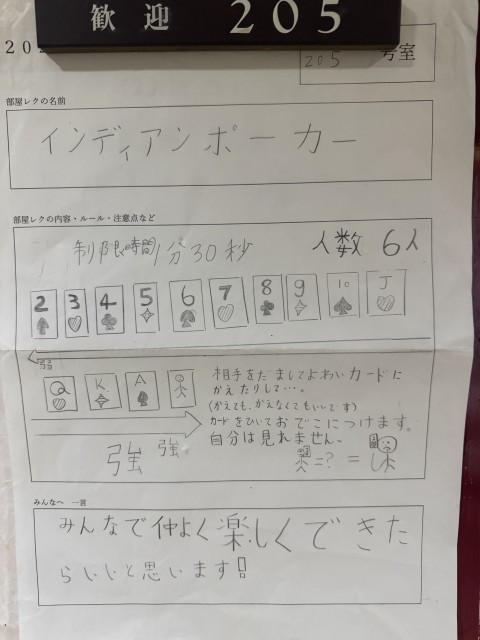 歓迎 205
205 号室
部屋レクの名前
インディアンポーカー
部屋レクの内容・ルール・注意点など
制限時間1分30秒 人数 6人
2 3 4 5 6 7 8 9 10 J
弱
Q K A
相手をだましてよわいカードに
かえたりして…。
(かえても、かえなくてもいいです)
カードをひいておでこにつけます。
自分は見れません。
強 強
=? =
みんなへ 一言
みんなで仲よく楽しくできた
らいいと思います!